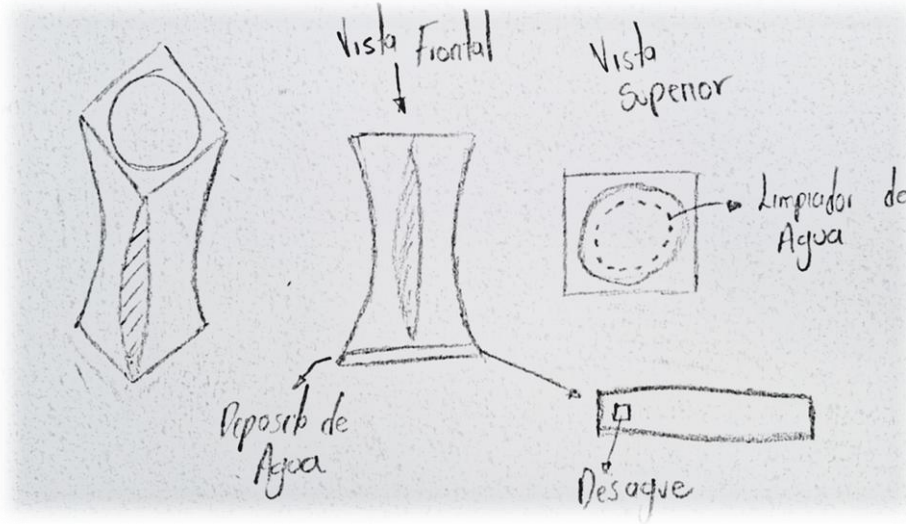 Vista Frontal
Vista
Superior
Limpiador de
Agua
Deposito de
Agua
Desague